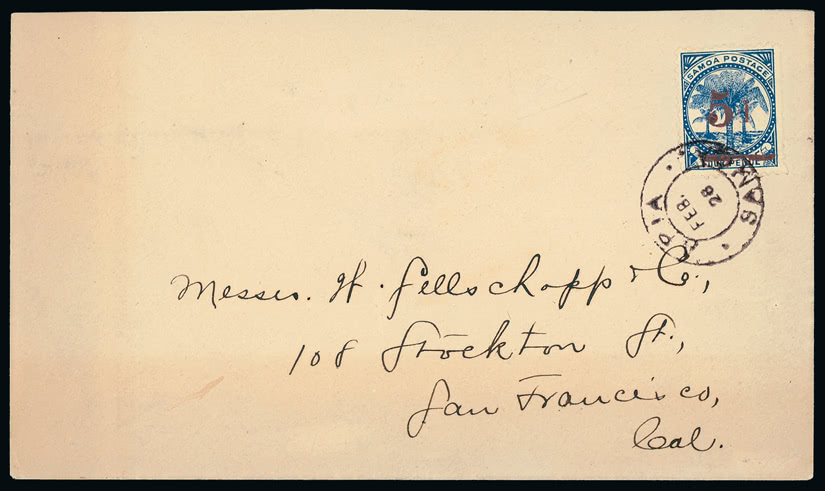 SAMOA POSTAGE
5d
APIA
SAMOA
FEB.
28
Messrs. W. Sellschopp & Co.,
108 Stockton St.,
San Francisco,
Cal.